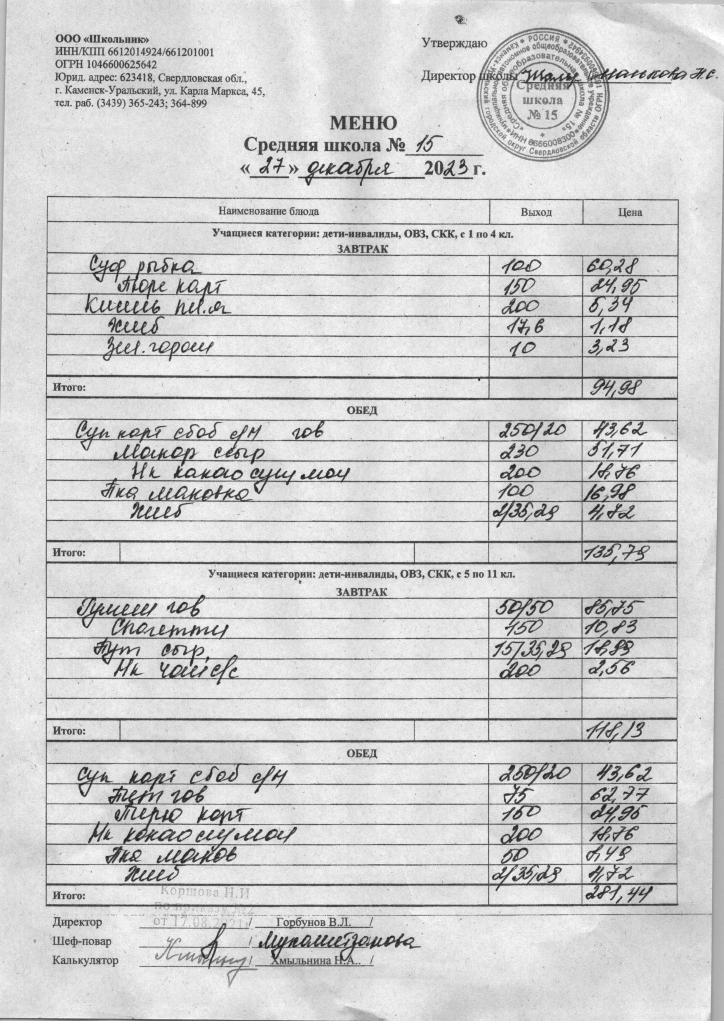 ООО «Школьник»
ИНН/КПП 6612014924/661201001
ОГРН 1046600625642
Юрид. адрес: 623418, Свердловская обл.,
г. Каменск-Уральский, ул. Карла Маркса, 45,
тел. раб. (3439) 365-243; 364-899
Утверждаю
Директор школы
Средняя школа № 15
МЕНЮ
Средняя школа № 15
« 27 » декабря 2023 г.
Наименование блюда Выход Цена
Учащиеся категории: дети-инвалиды, ОВЗ, СКК, с 1 по 4 кл.
ЗАВТРАК
Суф рыбка 100 60,28
Пюре карт 150 24,95
Кисель пл.яг 200 5,34
Хлеб 17,6 1,18
Зел.горош 10 3,23
Итого: 94,98
ОБЕД
Суп карт сбоб с/м гов 250/20 43,62
Макар ссыр 230 51,71
Нк какао сгущ мол 200 18,76
Пка маковка 100 16,98
Хлеб 2/35,29 4,72
Итого: 135,79
Учащиеся категории: дети-инвалиды, ОВЗ, СКК, с 5 по 11 кл.
ЗАВТРАК
Гуляш гов 50/50 85,75
Спагетти 150 10,83
Бут сыр 15/35,29 18,99
Нк чай с/с 200 2,56
Итого: 118,13
ОБЕД
Суп карт сбоб с/м 250/20 43,62
гов 75 62,77
Пюре карт 150 24,95
Нк какао сгущ мол 200 18,76
Пка маков 50 8,49
Хлеб 2/35,29 4,72
Итого: 281,44
Коршова Н.И
по приказу №2
от 17.08.2021
Директор / Горбунов В.Л. /
Шеф-повар / Мухаметзанова
Калькулятор / Хмыльнина Н.А.. /